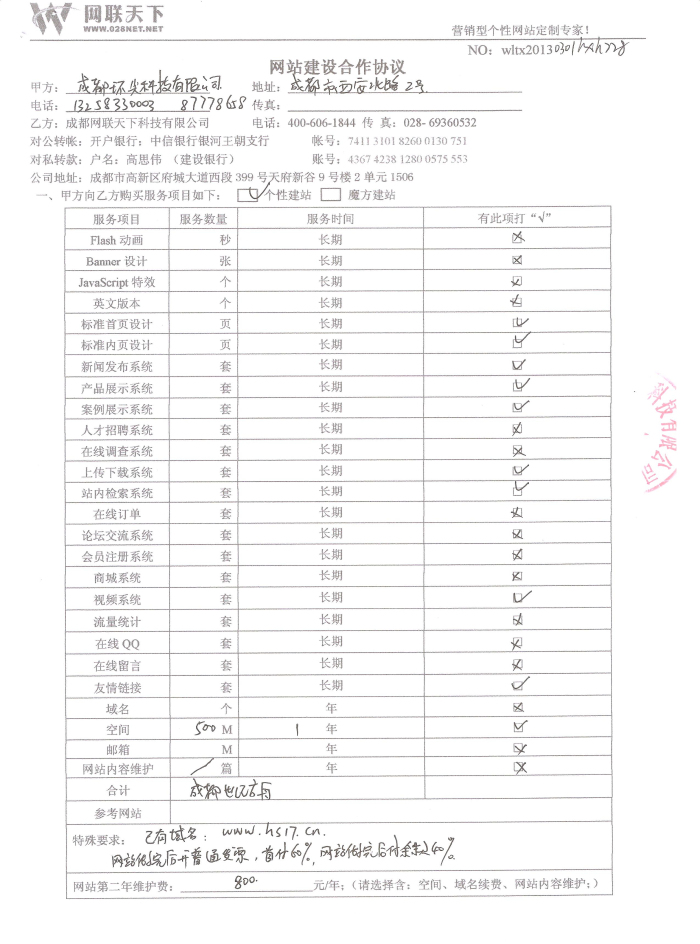 网联天下
WWW.028NET.NET
营销型个性网站定制专家!
NO: wltx20130301hxh228
网站建设合作协议
甲方: 成都环尖科技有限公司 地址: 成都市西安北路2号
电话: 13258330003 87778658 传真:
乙方: 成都网联天下科技有限公司 电话: 400-606-1844 传 真: 028- 69360532
对公转帐: 开户银行: 中信银行银河王朝支行 帐号: 7411 3101 8260 0130 751
对私转款: 户名: 高思伟 (建设银行) 账号: 4367 4238 1280 0575 553
公司地址: 成都市高新区府城大道西段 399 号天府新谷 9 号楼 2 单元 1506
一、甲方向乙方购买服务项目如下: ☑个性建站 □ 魔方建站
服务项目 服务数量 服务时间 有此项打“√”
Flash 动画 秒 长期
Banner 设计 张 长期
JavaScript 特效 个 长期
英文版本 个 长期
标准首页设计 页 长期 √
标准内页设计 页 长期 √
新闻发布系统 套 长期 √
产品展示系统 套 长期 √
案例展示系统 套 长期 √
人才招聘系统 套 长期
在线调查系统 套 长期
上传下载系统 套 长期 √
站内检索系统 套 长期 √
在线订单 套 长期
论坛交流系统 套 长期
会员注册系统 套 长期
商城系统 套 长期
视频系统 套 长期 √
流量统计 套 长期
在线 QQ 套 长期
在线留言 套 长期
友情链接 套 长期 √
域名 个 年
空间 500 M 1 年 √
邮箱 M 年
网站内容维护 篇 年
合计
参考网站
特殊要求: 已有域名: www.hs17.cn.
网站做完后开普通发票,首付60%,网站做完后付余款40%.
网站第二年维护费: 800. 元/年;(请选择含: 空间、域名续费、网站内容维护;)
科技有限公司